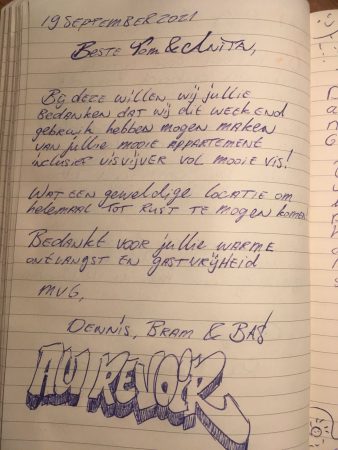 19 SEPTEMBER 2021
BESTE TOM & ANITA,
BIJ DEZE WILLEN WIJ JULLIE
BEDANKEN DAT WIJ DIT WEEKEND
GEBRUIK HEBBEN MOGEN MAKEN
VAN JULLIE MOOIE APPARTEMENT
INCLUSIEF VISVIJVER VOL MOOIE VIS!
WAT EEN GEWELDIGE LOCATIE OM
HELEMAAL TOT RUST TE MOGEN KOMEN
BEDANKT VOOR JULLIE WARME
ONTVANGST EN GASTVRIJHEID
MVG,
DENNIS, BRAM & BAS
AU REVOIR